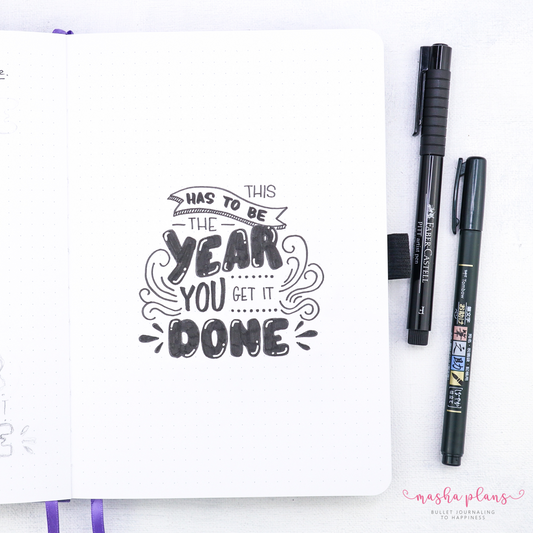 THIS
HAS TO BE
THE
YEAR
YOU GET IT
DONE
FABER-CASTELL
PITT artist pen
F
Tombow
masha plans
BULLET JOURNALING
TO HAPPINESS